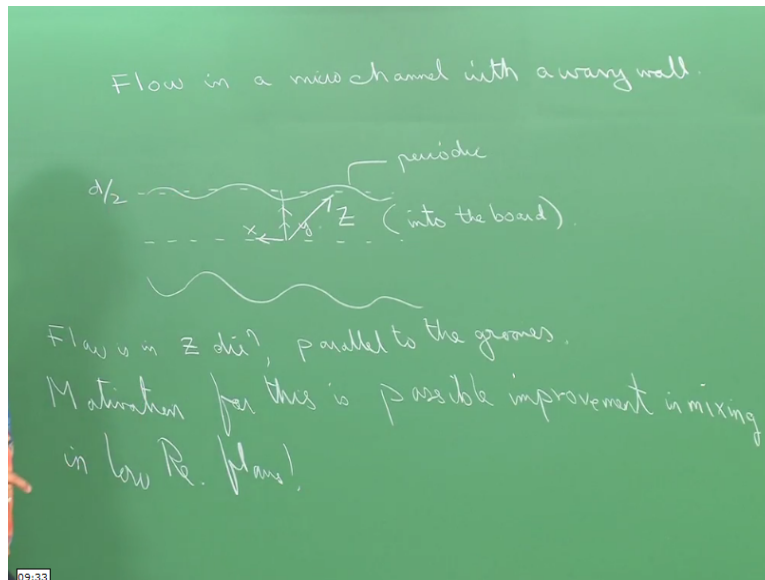 Flow in a microchannel with a wavy wall.
periodic
d/2
x y Z (into the board).
Flow is in Z dirⁿ, parallel to the grooves.
Motivation for this is possible improvement in mixing
in low Re. flows!
09:33